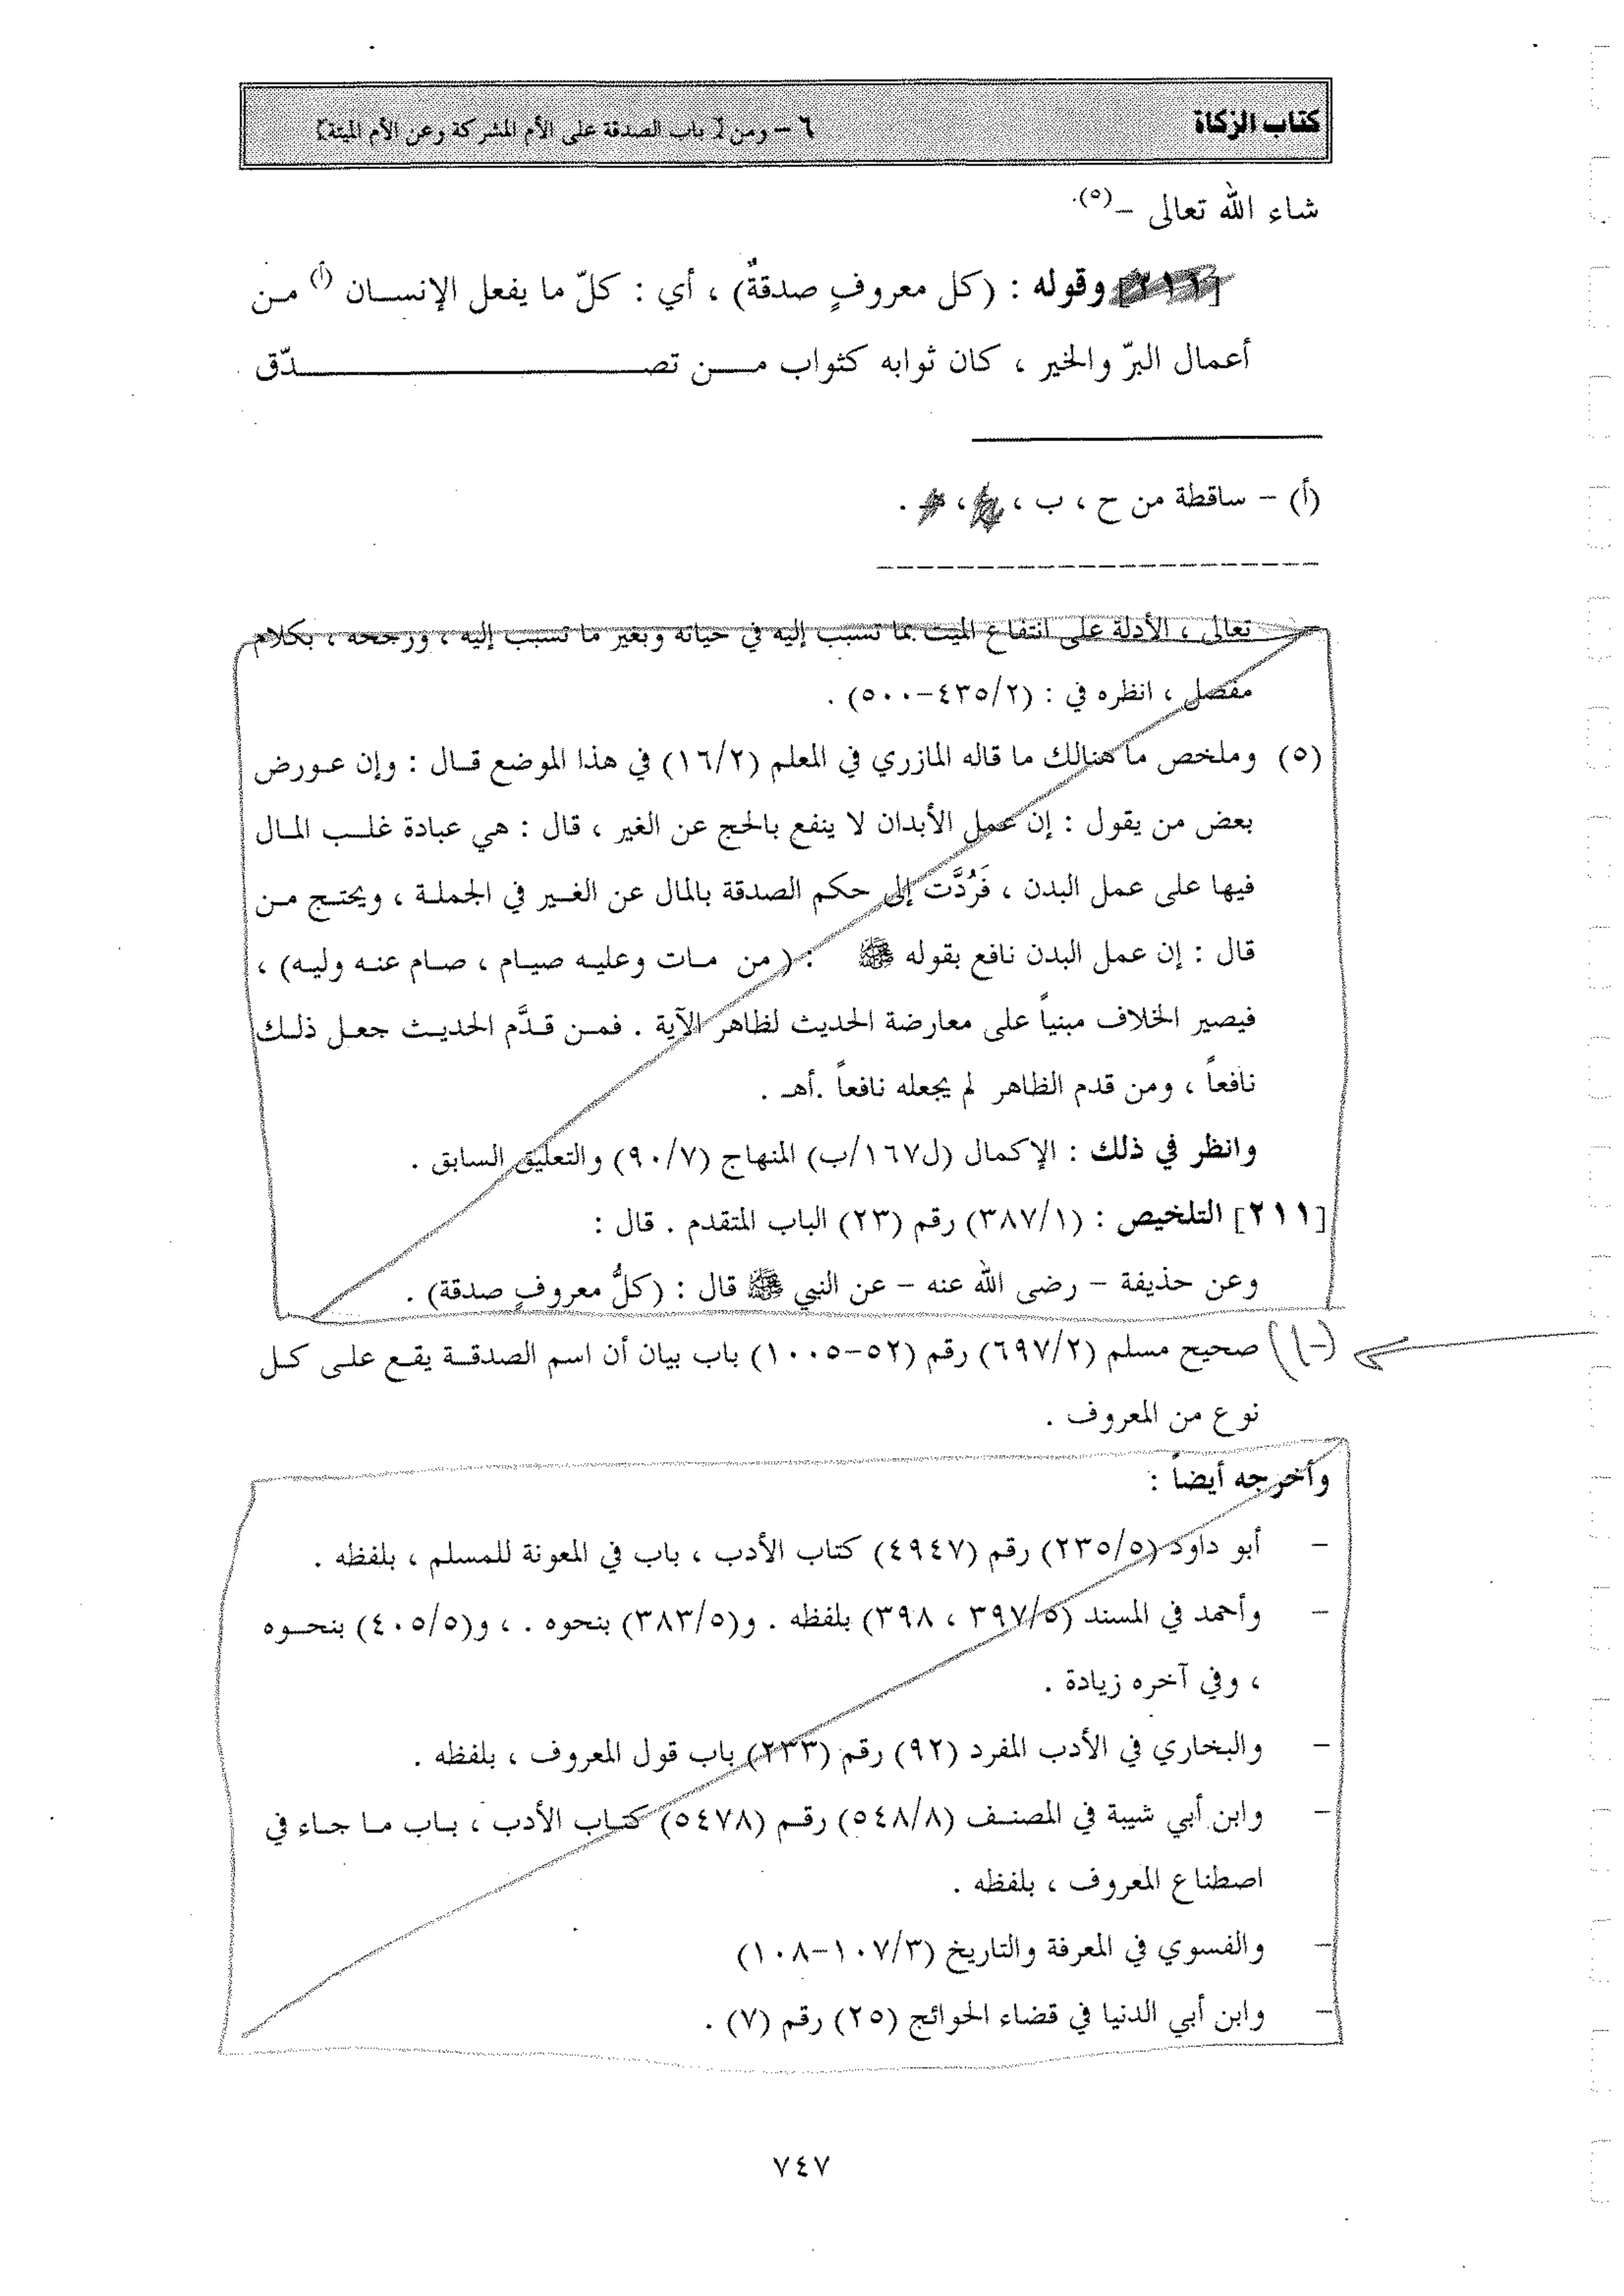 كتاب الزكاة
٦ – ومن [ باب الصدقة على الأم المشركة وعن الأم الميتة]
شاء الله تعالى –(٥).
[٢١١] وقوله : (كل معروفٍ صدقةٌ) ، أي : كلّ ما يفعل الإنسـان (أ) مـن
أعمال البرّ والخير ، كان ثوابه كثواب مـن تصـدّق
(أ) – ساقطة من ح ، ب ،
تعالى ، الأدلة على انتفاع الميت بما تسبب إليه في حياته وبغير ما تسبب إليه ، ورجحه ، بكلام
مفصل ، انظره في : (٤٣٥/٢–٥٠٠) .
(٥) وملخص ما هنالك ما قاله المازري في المعلم (١٦/٢) في هذا الموضع قـال : وإن عـورض
بعض من يقول : إن عمل الأبدان لا ينفع بالحج عن الغير ، قال : هي عبادة غلـب المـال
فيها على عمل البدن ، فَرُدَّت إلى حكم الصدقة بالمال عن الغـير في الجملـة ، ويحتـج مـن
قال : إن عمل البدن نافع بقوله ﷺ : (من مـات وعليـه صيـام ، صـام عنـه وليـه) ،
فيصير الخلاف مبنياً على معارضة الحديث لظاهر الآية . فمـن قـدَّم الحديـث جعـل ذلـك
نافعاً ، ومن قدم الظاهر لم يجعله نافعاً .أهـ .
وانظر في ذلك : الإكمال (ل١٦٧/ب) المنهاج (٩٠/٧) والتعليق السابق .
[٢١١] التلخيص : (٣٨٧/١) رقم (٢٣) الباب المتقدم . قال :
وعن حذيفة – رضى الله عنه – عن النبي ﷺ قال : (كلُّ معروفٍ صدقة) .
(١-) صحيح مسلم (٦٩٧/٢) رقم (٥٢–١٠٠٥) باب بيان أن اسم الصدقـة يقـع علـى كـل
نوع من المعروف .
وأخرجه أيضاً :
– أبو داود (٢٣٥/٥) رقم (٤٩٤٧) كتاب الأدب ، باب في المعونة للمسلم ، بلفظه .
– وأحمد في المسند (٣٩٧/٥ ، ٣٩٨) بلفظه . و(٣٨٣/٥) بنحوه . ، و(٤٠٥/٥) بنحـوه
، وفي آخره زيادة .
– والبخاري في الأدب المفرد (٩٢) رقم (٢٣٣) باب قول المعروف ، بلفظه .
– وابن أبي شيبة في المصنـف (٥٤٨/٨) رقـم (٥٤٧٨) كتـاب الأدب ، بـاب مـا جـاء في
اصطناع المعروف ، بلفظه .
– والفسوي في المعرفة والتاريخ (١٠٧/٣–١٠٨)
– وابن أبي الدنيا في قضاء الحوائج (٢٥) رقم (٧) .
٧٤٧